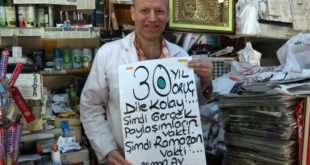 30 YIL
ORUÇ
Dile Kolay...
Şimdi Gerçek
Paylaşımların
Vakti..
Şimdi Ramazan
Vakti...